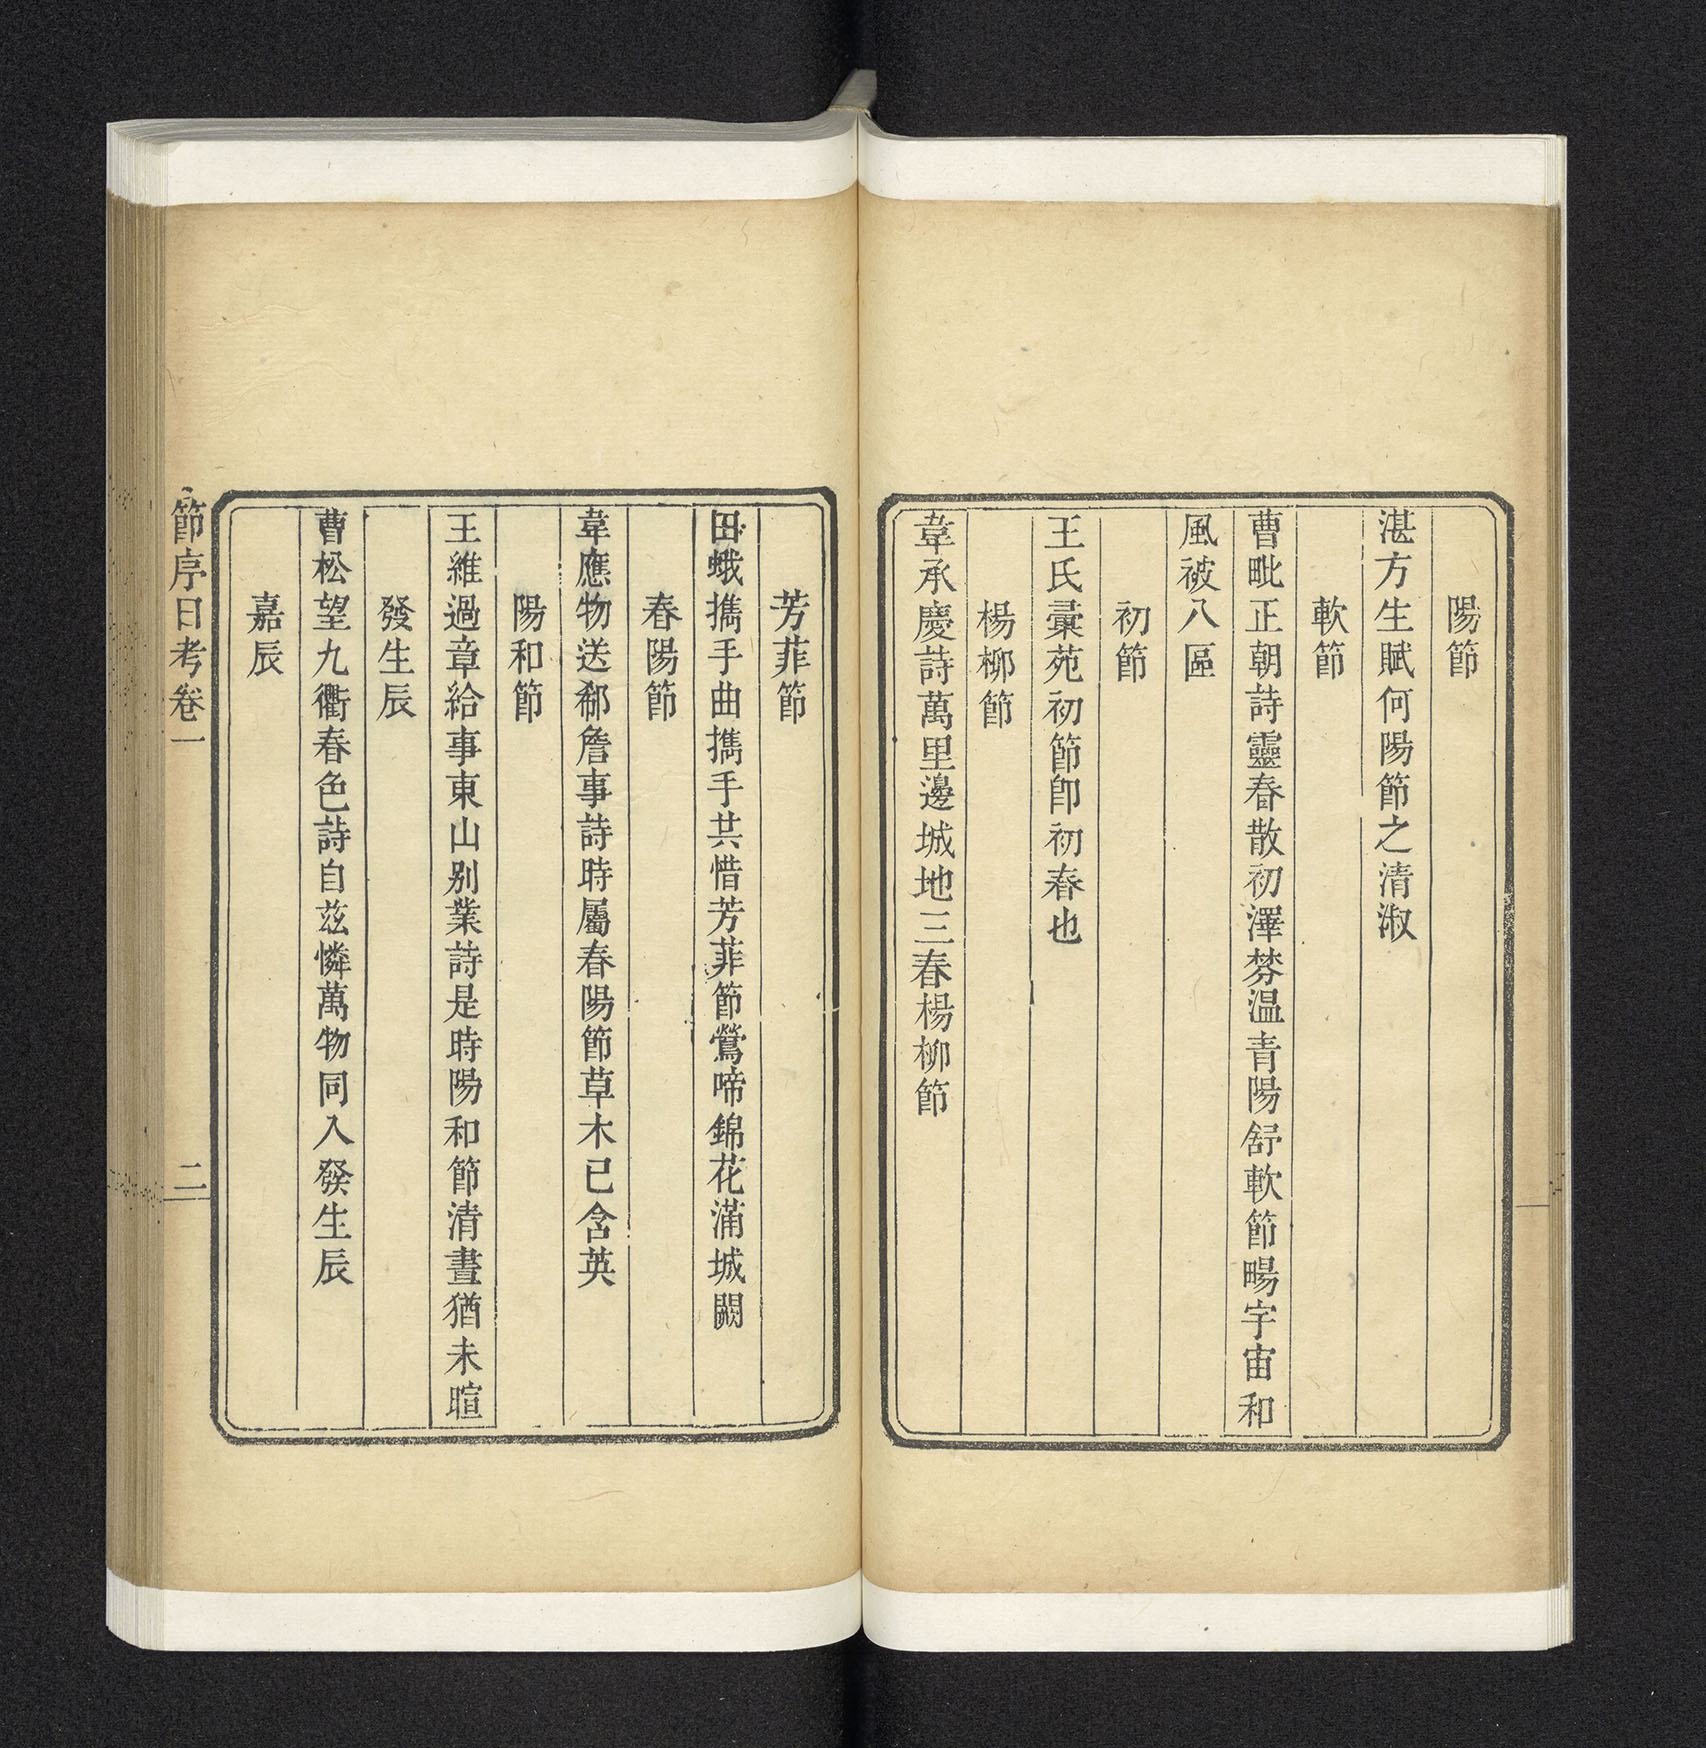 陽節
湛方生賦何陽節之清淑
軟節
曹毗正朝詩靈春散初澤棼温青陽舒軟節暘宇宙和
風被八區
初節
王氏彙苑初節卽初春也
楊柳節
韋承慶詩萬里邊城地三春楊柳節
芳菲節
田娥携手曲携手共惜芳菲節鶯啼錦花滿城闕
春陽節
韋應物送郗詹事詩時屬春陽節草木已含英
陽和節
王維過韋給事東山别業詩是時陽和節清晝猶未暄
發生辰
曹松望九衢春色詩自兹憐萬物同入發生辰
嘉辰
節序日考卷一
二